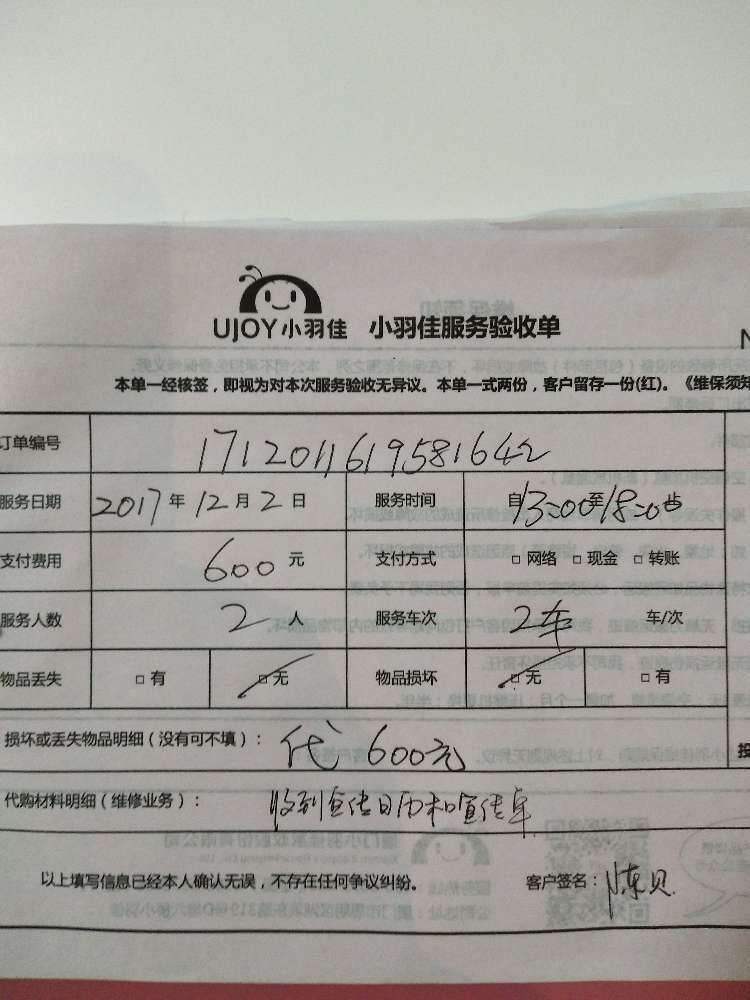 UJOY小羽佳 小羽佳服务验收单
本单一经核签，即视为对本次服务验收无异议。本单一式两份，客户留存一份(红)。《维保须知
订单编号 1712011619581642
服务日期 2017年12月2日 服务时间 自13:00至18:00止
支付费用 600元 支付方式 □网络 □现金 □转账
服务人数 2人 服务车次 2车 车/次
物品丢失 □有 □无 物品损坏 □无 □有
损坏或丢失物品明细（没有可不填）： 代 600元
代购材料明细（维修业务）： 收到宣传日历和宣传单
以上填写信息已经本人确认无误，不存在任何争议纠纷。 客户签名：陈贝